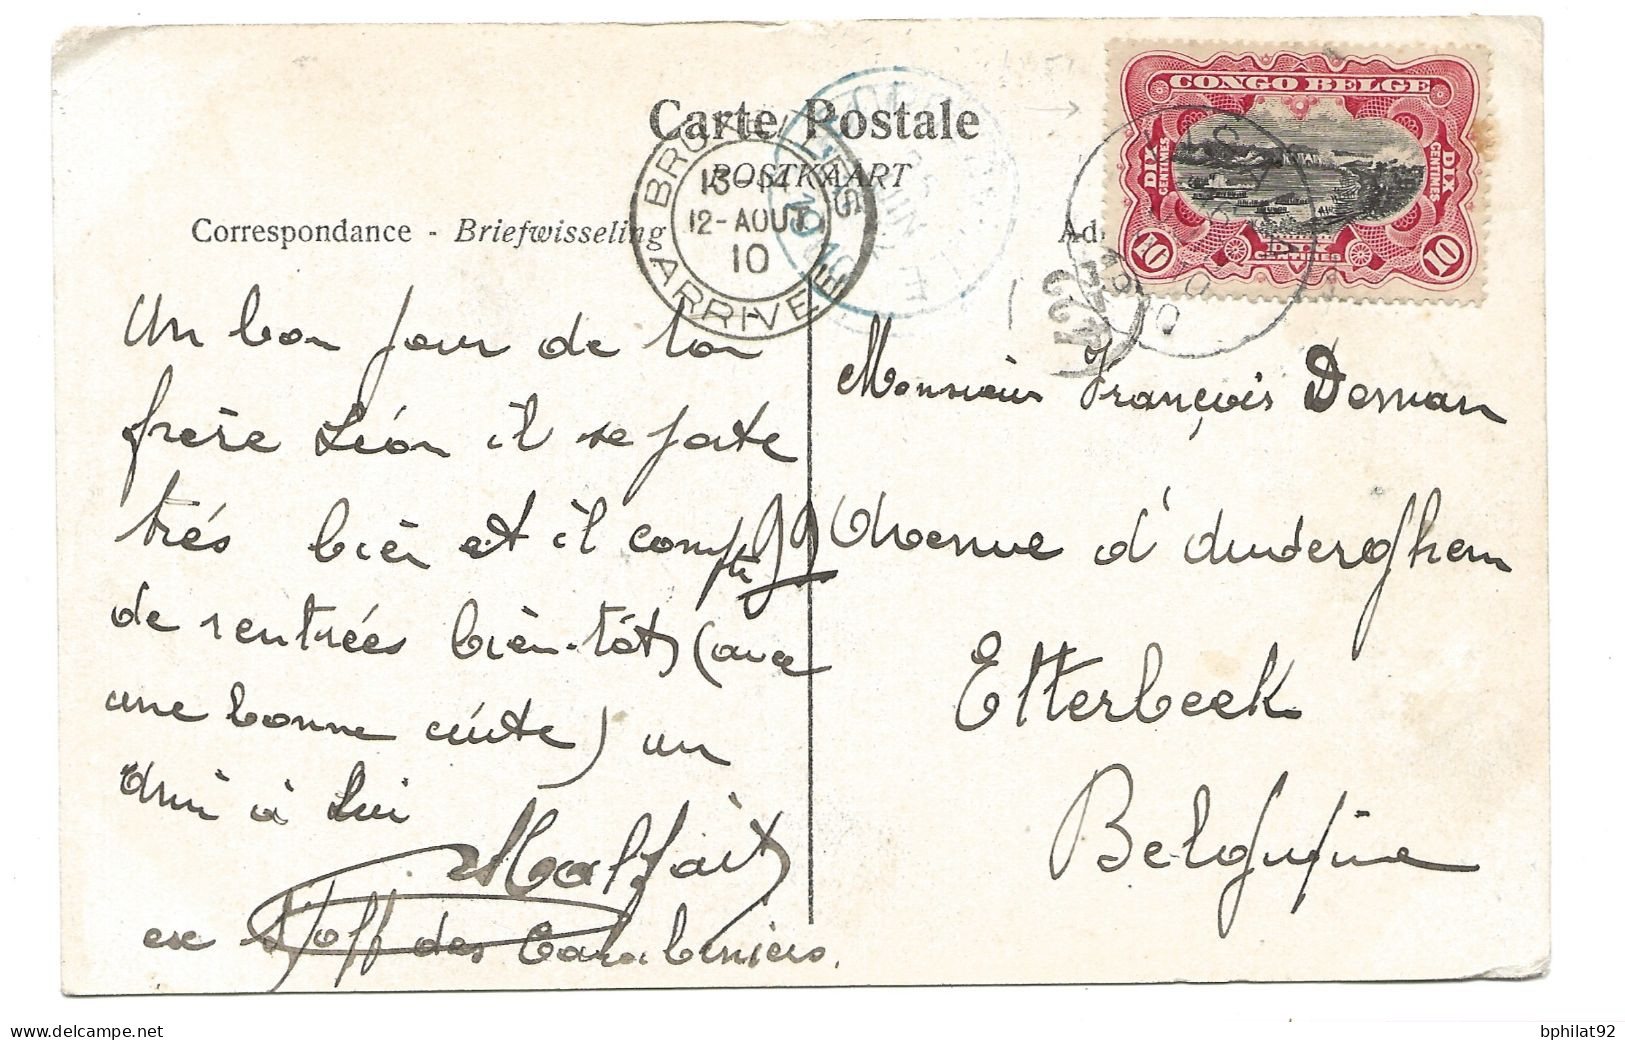 Carte Postale
POSTKAART
Correspondance - Briefwisseling
Ad
CONGO BELGE
DIX CENTIMES
DIX CENTIMES
10 DIX CENTIMES 10
BRUXELLES
13-14
12-AOUT
10
ARRIVEE
Un bon jour de ton
frère Léon il se porte
trés bièn et il compte
de rentrées bièn-tôt (avec
une bonne cuite) un
Ami à Lui
Malfait
ex S/off des Carabiniers.
Monsieur François Deman
99 Avenue d'Auderghem
Etterbeek
Belgique
bphilat92